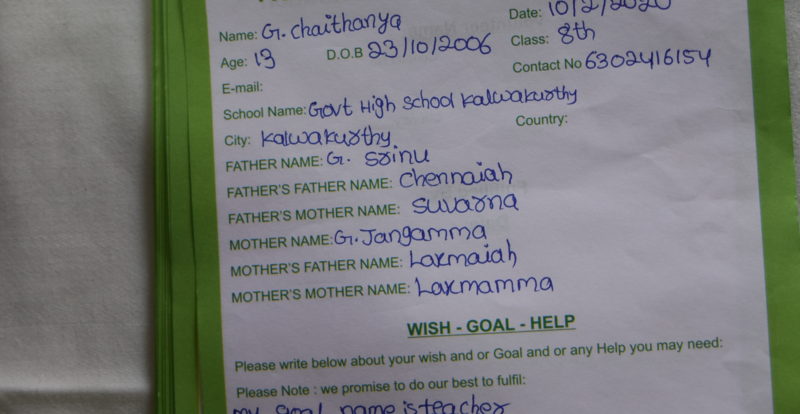 Name: G. chaithanya Date: 10/2/2020
Age: 13 D.O.B 23/10/2006 Class: 8th
E-mail: Contact No 6302416154
School Name: Govt High School Kalwakurthy
City: Kalwakurthy. Country:
FATHER NAME: G. Srinu
FATHER'S FATHER NAME: Chennaiah
FATHER'S MOTHER NAME: Suvarna
MOTHER NAME: G. Jangamma
MOTHER'S FATHER NAME: Laxmaiah
MOTHER'S MOTHER NAME: Laxmamma
WISH - GOAL - HELP
Please write below about your wish and or Goal and or any Help you may need:
Please Note : we promise to do our best to fulfil:
my Goal name is teacher